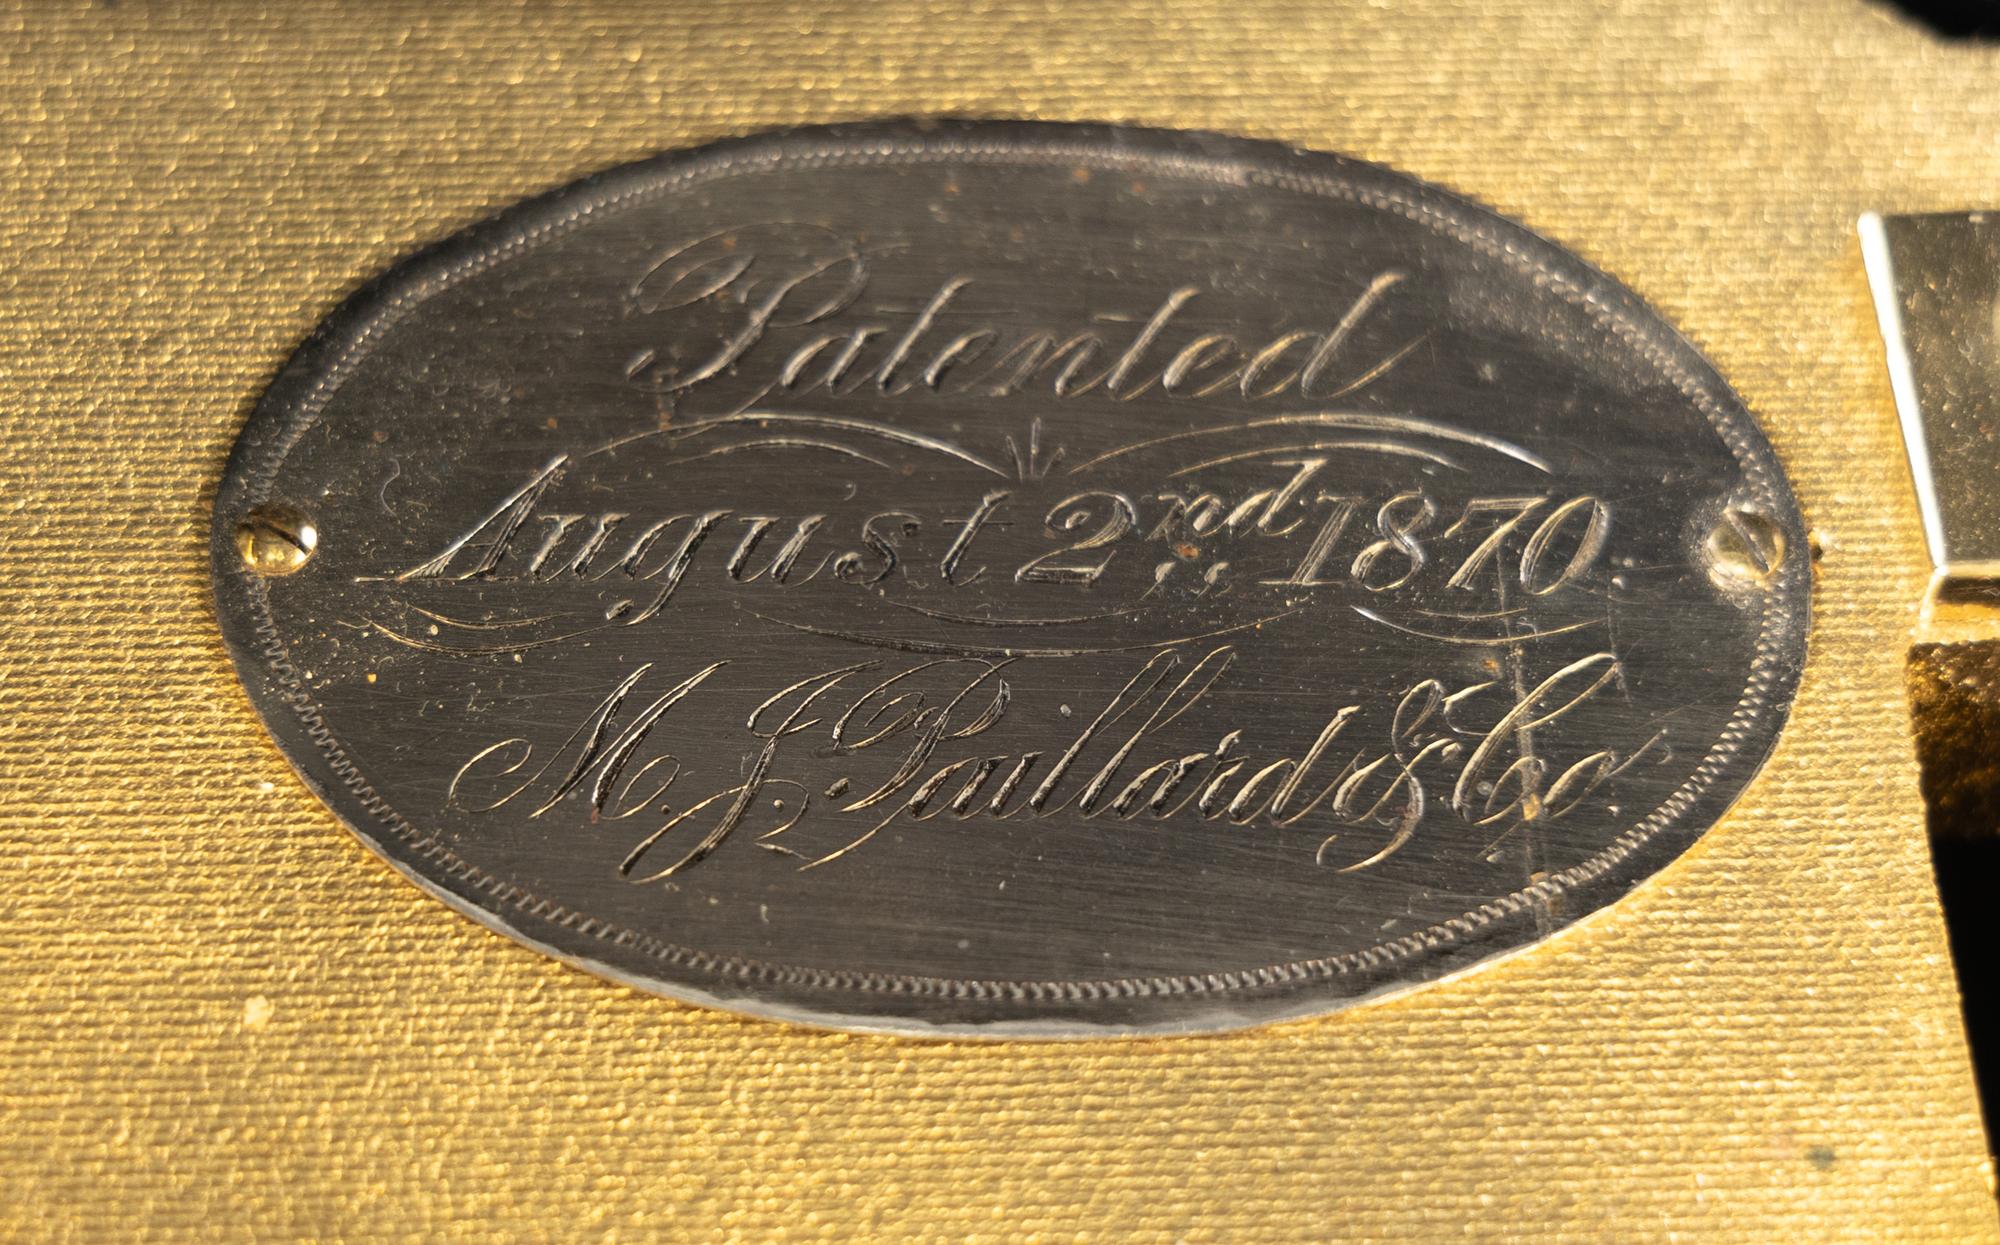 Patented
August 2nd 1870.
M. J. Paillard & Co